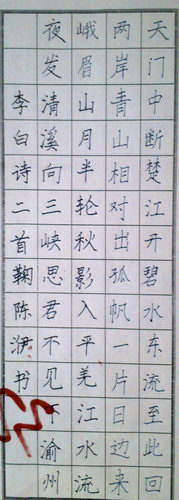 天门中断楚江开碧水东流至此回
两岸青山相对出孤帆一片日边来
峨眉山月半轮秋影入平羌江水流
夜发清溪向三峡思君不见下渝州
李白诗二首鞠陈书